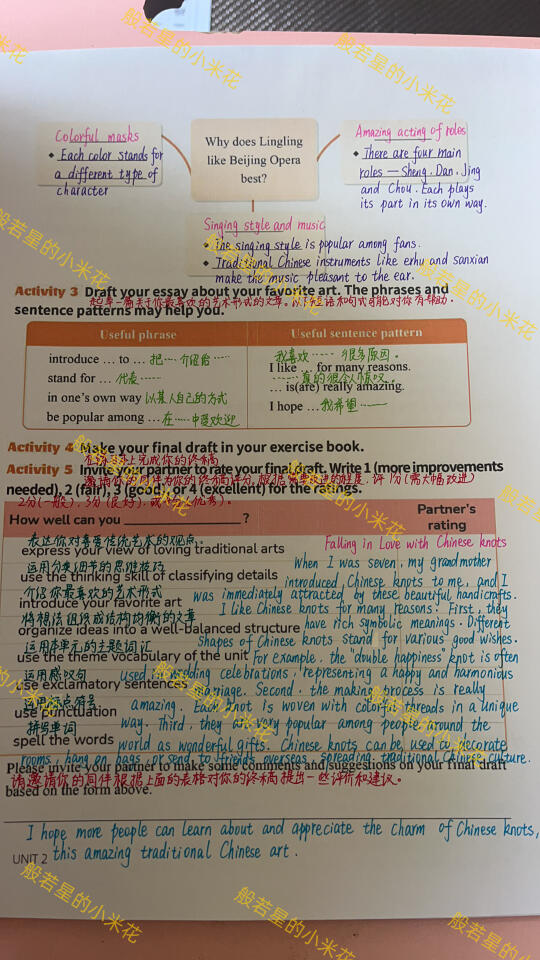 Colorful masks
• Each color stands for
a different type of
character
Why does Lingling
like Beijing Opera
best?
Amazing acting of roles
• There are four main
roles — Sheng, Dan, Jing
and Chou. Each plays
its part in its own way.
Singing style and music
• The singing style is popular among fans.
• Traditional Chinese instruments like erhu and sanxian
make the music pleasant to the ear.
Activity 3 Draft your essay about your favorite art. The phrases and
起草一篇关于你最喜欢的艺术形式的文章。以下短语和句式可能对你有帮助.
sentence patterns may help you.
Useful phrase
Useful sentence pattern
introduce … to … 把……介绍给……
stand for … 代表……
in one's own way 以某人自己的方式
be popular among … 在……中受欢迎
我喜欢……很多原因。
I like … for many reasons.
……真的很令人惊叹.
… is(are) really amazing.
I hope … 我希望……
Activity 4 Make your final draft in your exercise book.
在练习本上完成你的终稿
Activity 5 Invite your partner to rate your final draft. Write 1 (more improvements
邀请你的同伴为你的终稿评分, 根据需要改进的程度, 评1分(需大幅改进)
needed), 2 (fair), 3 (good), or 4 (excellent) for the ratings.
2分(一般), 3分(良好), 或4分(优秀).
How well can you ____________ ?
Partner's
rating
表达你对喜爱传统艺术的观点.
express your view of loving traditional arts
运用分类细节的思维技巧
use the thinking skill of classifying details
介绍你最喜欢的艺术形式
introduce your favorite art
将想法组织成结构均衡的文章
organize ideas into a well-balanced structure
运用本单元的主题词汇
use the theme vocabulary of the unit
运用感叹句
use exclamatory sentences
运用标点符号
use punctuation
拼写单词
spell the words
Falling in Love with Chinese knots
When I was seven, my grandmother
introduced Chinese knots to me, and I
was immediately attracted by these beautiful handicrafts.
I like Chinese knots for many reasons. First, they
have rich symbolic meanings. Different
shapes of Chinese knots stand for various good wishes.
For example, the "double happiness" knot is often
used in wedding celebrations, representing a happy and harmonious
marriage. Second, the making process is really
amazing. Each knot is woven with colorful threads in a unique
way. Third, they are very popular among people around the
world as wonderful gifts. Chinese knots can be used to decorate
rooms, hang on bags, or send to friends overseas, spreading traditional Chinese culture.
Please invite your partner to make some comments and suggestions on your final draft
请邀请你的同伴根据上面的表格对你的终稿提出一些评价和建议。
based on the form above.
I hope more people can learn about and appreciate the charm of Chinese knots,
this amazing traditional Chinese art.
UNIT 2
般若星的小米花
般若星的小米花
般若星的小米花
般若星的小米花
般若星的小米花
般若星的小米花
般若星的小米花
般若星的小米花
般若星的小米花
般若星的小米花
般若星的小米花